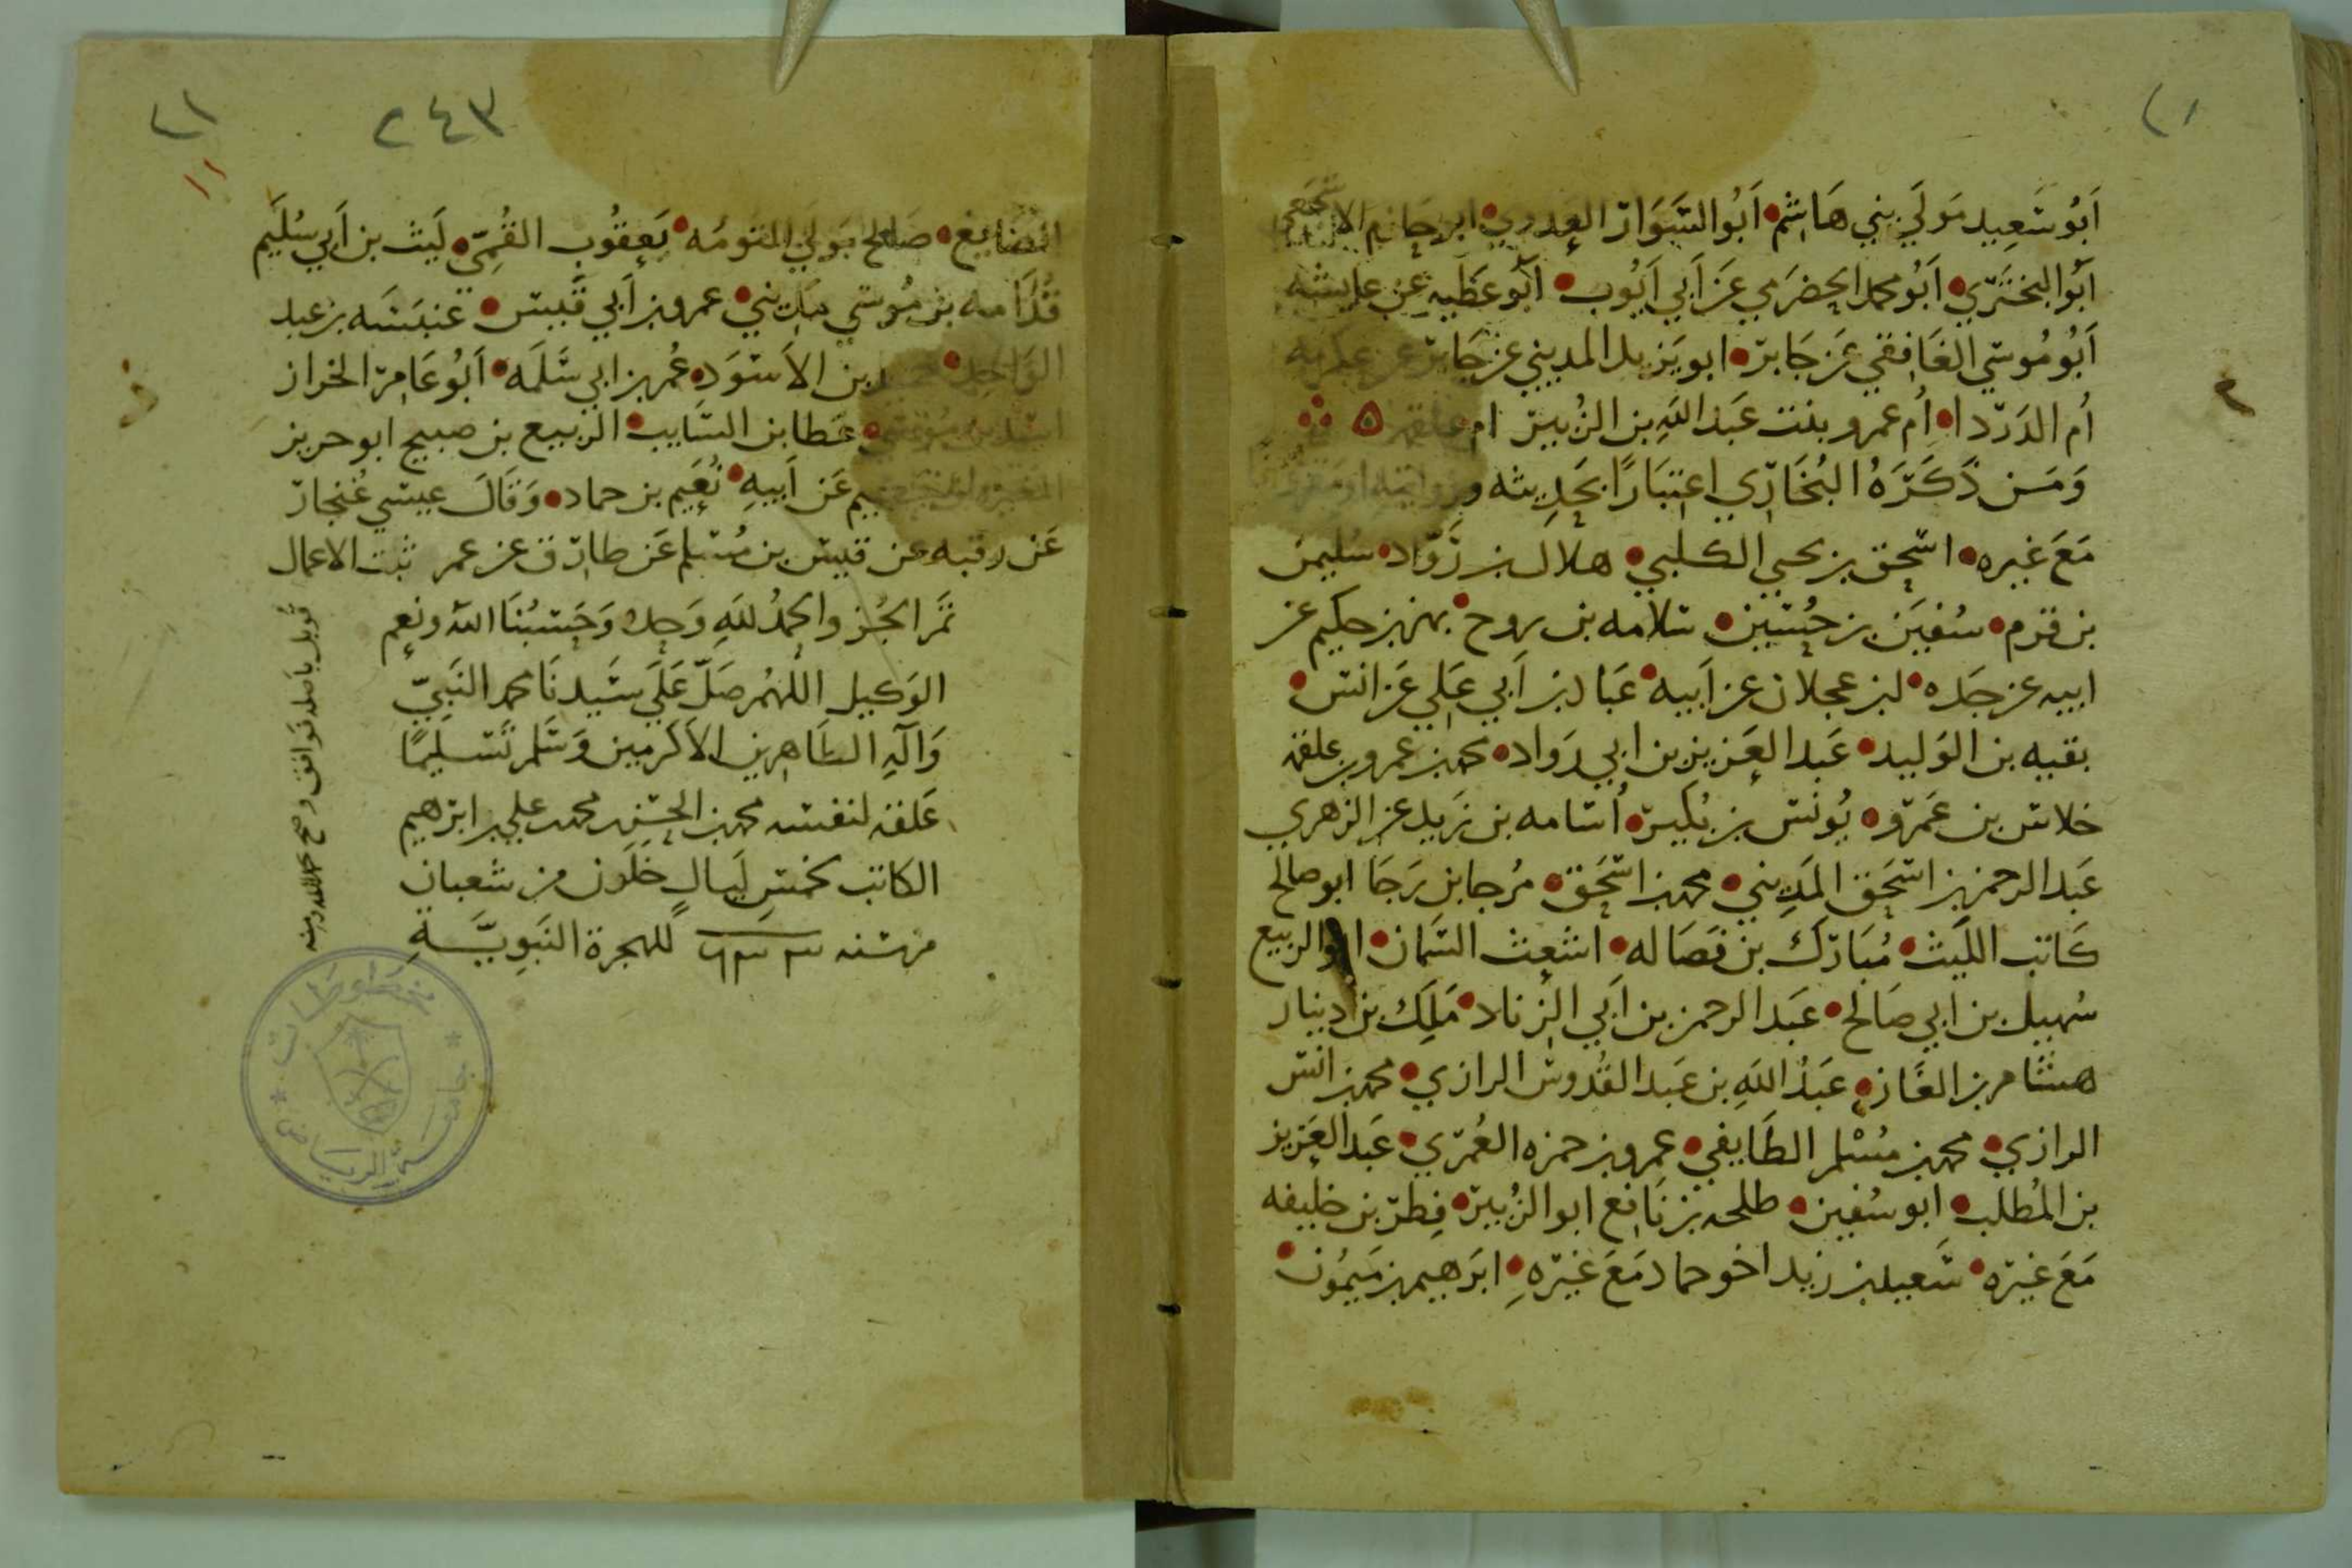 ٢١
أَبُو سَعِيد مَولَي بني هَاشِم • أَبُو السَّوَار العدوي • ابو حَاتِم الأشجعي
أَبُو البختَرِي • أَبُو محمد الحضرَمي عَن أَبي أَيُوب • أَبو عَطَيه عَن عايشه
أَبُو مُوسَي الغَافِقي عَن جَابر • ابو يَزيد المديني عن جَابر عن عكرمه
أُم الدَردا • أُم عمرو بنت عَبد اللهِ بن الزُبير ام علقمه ٥
وَمَن ذَكَرَهُ البُخَارِي اعتِبَارًا بحَدِيثه وروايته او مقرونا
مَعَ غيره • اسحق بن يحيي الكلبي • هلال بن رَدّاد • سليمن
بن قرم • سُفيَن بن حُسَين • سلامه بن روح • بهز بن حكيم عن
ابيه عن جَده • ابن عجلان عن أَبيه • عَباد بن أَبي عَلي عَن انس •
بقيه بن الوَليد • عَبد العَزيز بن ابي رَواد • محمد بن عمرو بن علقمه
خلاس بن عَمرو • يُونس بن بُكَير • أُسَامه بن زَيد عن الزهري
عَبد الرحمن بن اسحَق المَدِيني • محمد بن اسحَق • مُرجا بن رَجَا ابو صالح
كَاتب اللَيث • مُبَارَك بن فَضَاله • اشعث السَّمان • ابو الربيع
سُهيل بن ابي صَالح • عَبد الرحمن بن أَبي الزناد • مَلِك بن دينار
هشَام بن الغَاز • عَبدُ اللهِ بن عَبد القُدوس الرازي • محمد بن انس
الرازي • محمد بن مُسْلم الطَايفي • عمرو بن حمزه العُمَري • عَبد العَزيز
بن المُطلب • ابو سُفين • طلحه بن نَافِع ابو الزُبير • فِطر بن خليفه
مَعَ غيره • سَعيد بن زيد اخو حماد مَعَ غيَرهِ • ابرَهيم بن مَيمُون •
٢١
٢٤٣
١١
الصَايغ • صَالح مَولَي التومَه • يَعقُوب القُمِي • لَيث بن أَبي سُلَيم
قُدَامه بن مُوسَي مَدِيني • عمرو بن أَبي قَيس • عَنبَسَه بن عبد
الوَاحِد • حميد بن الأَسوَدِ • عُمر بن ابي سَلَمَه • أَبُو عَامِر الخزاز
اسَد بن مُوسَي • عَطا بن السَايب • الربيع بن صبيح ابو حريز
المغيره عَن أَبيهِ • نُعَيم بن حماد • وَقَالَ عيسَي غُنجار
عَن رقبه عن قيس بن مُسلم عَن طارق عن عمر ثبت الاعمال
تَمَ الجُز والحمدُ للهِ وَحدهُ وَحَسبُنَا اللهُ ونِعم
الوَكيل اللهُم صَلّ عَلَي سَيدنَا محمد النَبِيّ
وَآلهِ الطَاهِرين الأَكرَمين وَسَلم تَسليمًا
عَلقه لنفسه محمد بن الحسن محمد بن علي بن ابرهيم
الكاتب لخمسِ لَيَالٍ خلَون من شعبان
من سَنه ٦٣٣ للهجرة النَبَوِيَّةِ
قوبل بأصله فوافق وصح
مخطوطات
جامعة الرياض